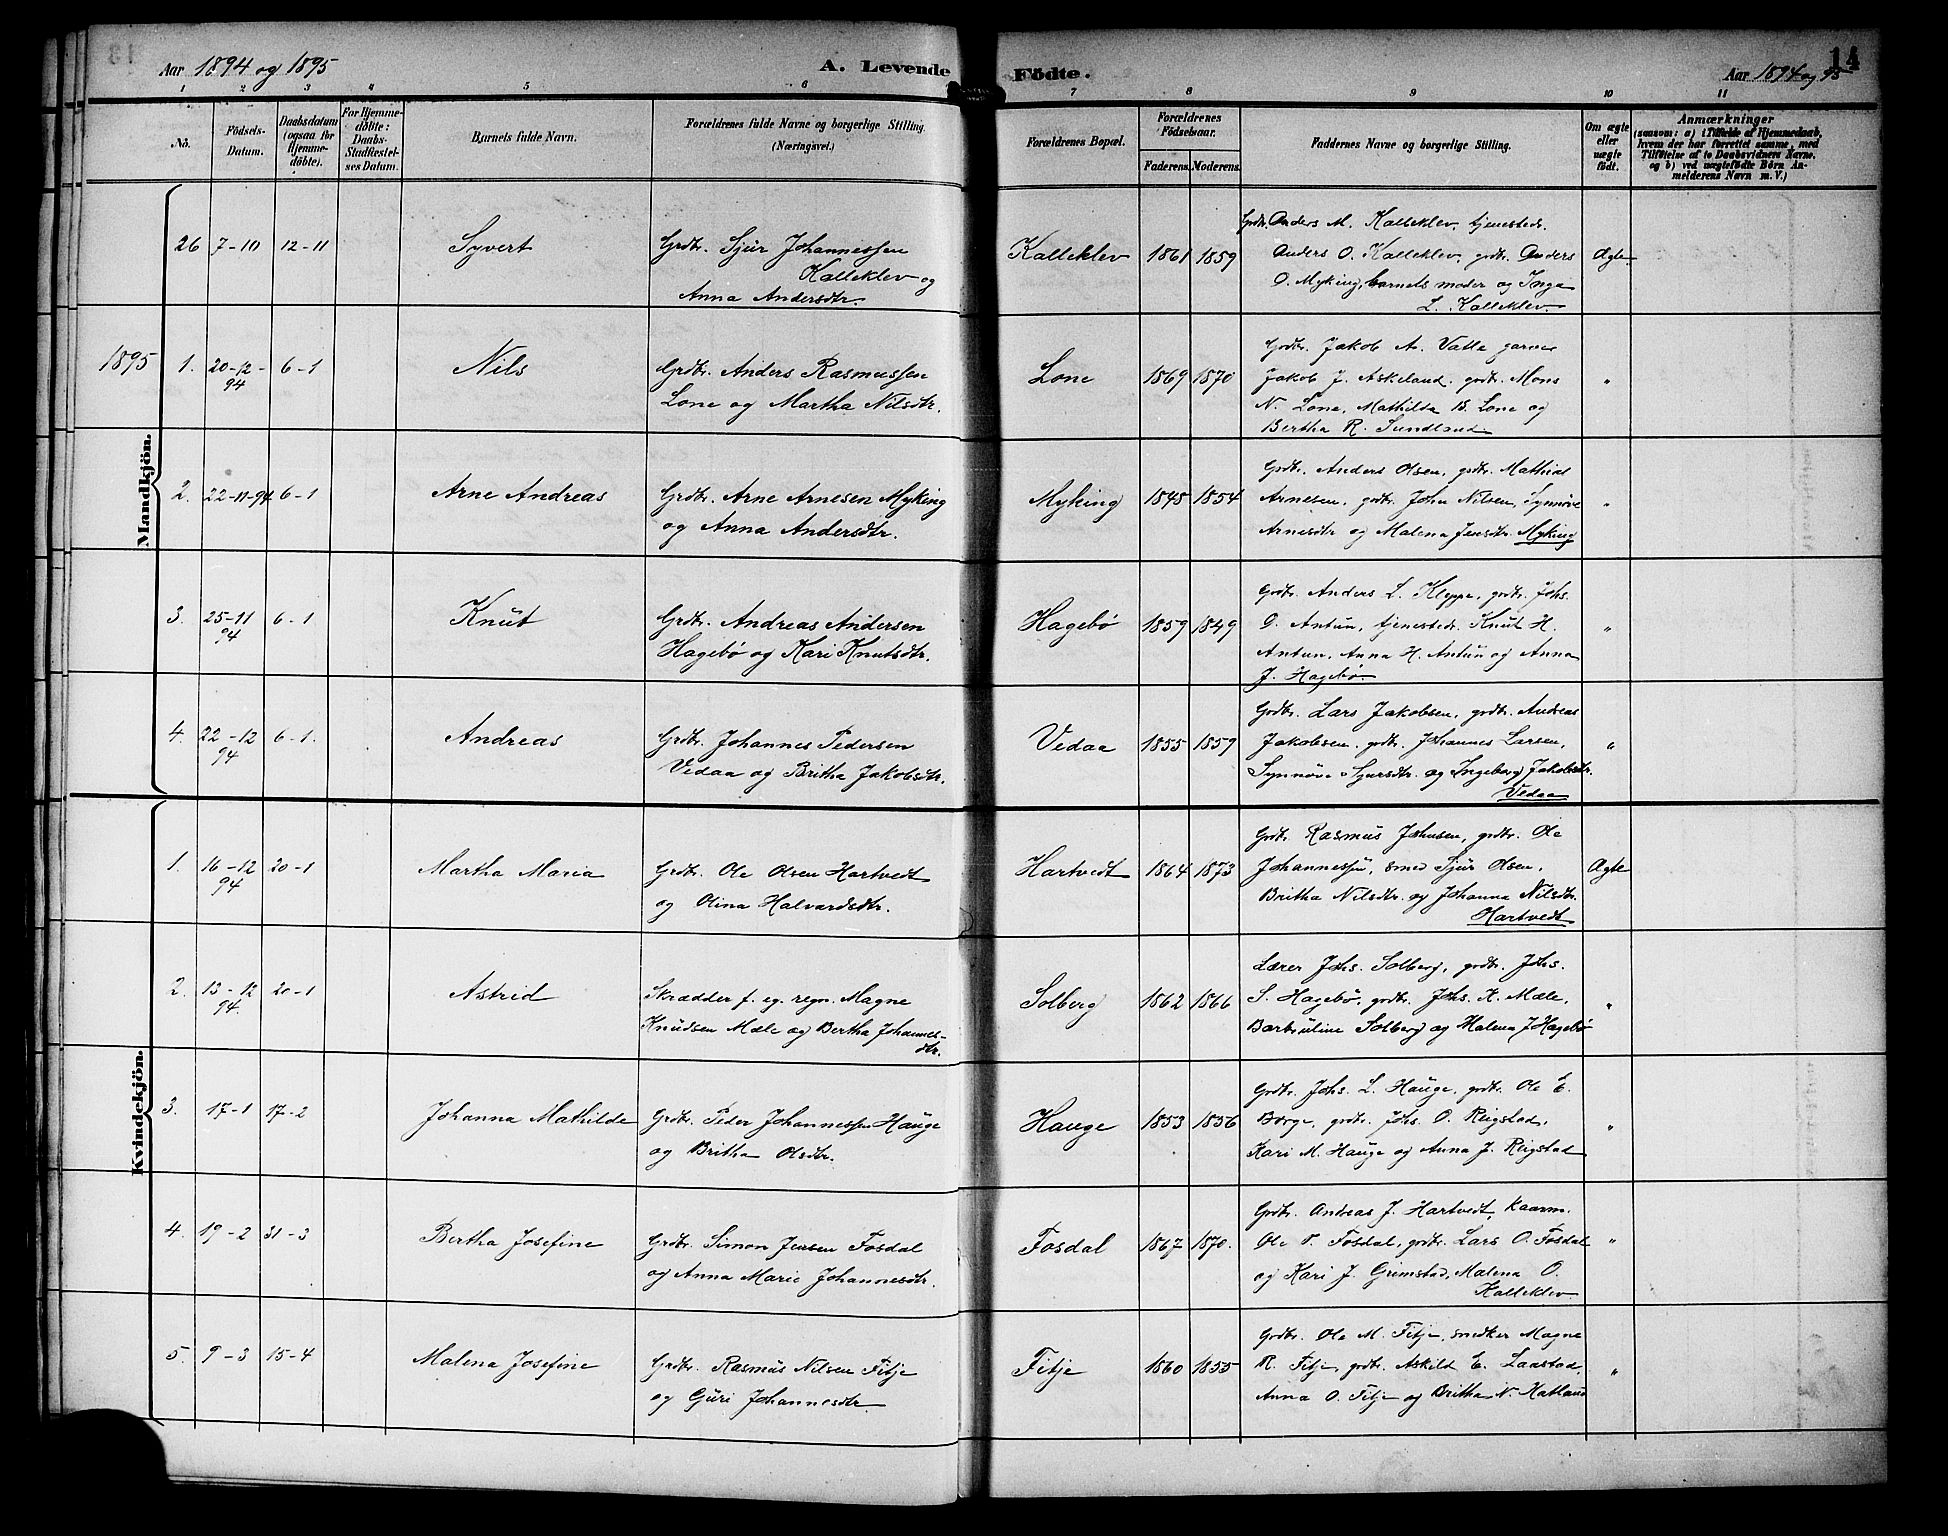 Aar 1894 og 1895
A. Levende Födte.
Aar 1894 og 95
14
1 2 3 4 5 6 7 8 9 10 11
Nô.
Födsels-Datum.
Daabsdatum (ogsaa for Hjemmedöbte).
For Hjemmedöbte: Daabs-Stadfæstelses Datum.
Barnets fulde Navn.
Forældrenes fulde Navne og borgerlige Stilling.
(Næringsvei.)
Forældrenes Bopæl.
Forældrenes Födselsaar.
Faderens. Moderens.
Faddernes Navne og borgerlige Stilling.
Om ægte eller uægte födt.
Anmærkninger
(saasom: a) i Tilfælde af Hjemmedaab,
hvem der har forrettet samme, med
Tilföielse af to Daabsvidners Navne,
og b) ved uægtefödte Börn An-
melderens Navn m. V.)
Mandkjön.
26 7-10 12-11 Syvert
Grdbr. Sjur Johannessen
Kalleklev og
Anna Andersdtr.
Kalleklev 1861 1859
Grdbr. Anders M. Kalleklev, tjenestedr.
Anders O. Kalleklev, grdbr. Anders
O. Myking, barnets moder og Inga
L. Kalleklev.
Ægte
1895
1. 20-12-94 6-1 Nils
Grdbr. Anders Rasmussen
Lone og Martha Nilsdtr.
Lone 1869 1870
Grdbr. Jakob A. Valle garver
Jakob J. Askeland, grdbr. Mons
N. Lone, Mathilda B. Lone og
Bertha R. Sundland.
"
2. 22-11-94 6-1 Arne Andreas
Grdbr. Arne Arnesen Myking
og Anna Andersdtr.
Myking 1845 1854
Grdbr. Anders Olsen, grdbr. Mathias
Arnesen, grdbr. John Nilsen, Synnöve
Arnesdtr og Malena Jensdtr. Myking
"
3. 25-11 94 6-1 Knut
Grdbr. Andreas Andersen
Hagebö og Kari Knutsdtr.
Hagebö 1859 1849
Grdbr. Anders L. Kleppe, grdbr. Johs.
O. Antun, tjenestedr. Knut H.
Antun, Anna H. Antun og Anna
J. Hagebö.
"
4. 22-12 94 6-1. Andreas
Grdbr. Johannes Pedersen
Vedaa og Britha Jakobsdtr.
Vedaa 1855 1859
Grdbr. Lars Jakobsen, grdbr. Andreas
Jakobsen, grdbr. Johannes Larsen,
Synnöve Sjursdtr. og Ingeborg Jakobsdtr.
Vedaa
"
Kvindekjön.
1. 16-12 94 20-1 Martha Maria
Grdbr. Ole Olsen Hartvedt
og Olina Halvardsdtr.
Hartvedt 1864 1873
Grdbr. Rasmus Johnsen, grdbr. Ole
Johannessen, smed Sjur Olsen,
Britha Nilsdtr. og Johanna Nilsdtr.
Hartvedt
Ægte
2. 13-12 94. 20-1 Astrid
Skrædder f. eg. regn. Magne
Knudsen Mæle og Bertha Johannes-
dtr.
Solberg 1862 1866
Lærer Johs. Solberg, grdbr. Johs.
S. Hagebö, grdbr. Johs. K. Mæle,
Barbruline Solberg og Malena J Hagebö
"
3. 17-1 17-2 Johanna Mathilde
Grdbr. Peder Johannessen Hauge
og Britha Olsdtr.
Hauge 1853 1856
Grdbr. Johs. L. Hauge, grdbr. Ole E.
Borge, grdbr. Johs. O. Reigstad,
Kari M. Hauge og Anna J. Reigstad
"
4. 19-2 31-3 Bertha Josefine
Grdbr. Simon Jensen Fosdal
og Anna Marie Johannesdtr.
Fosdal 1867 1870.
Grdbr. Andreas J. Hartvedt, kaarm.
Ole P. Fosdal, grdbr. Lars O. Fosdal
og Kari J. Grimstad, Malena O.
Kalleklev.
"
5. 9-3 15-4 Malena Josefine
Grdbr. Rasmus Nilsen Fitje
og Guri Johannesdtr.
Fitje 1860 1855
Grdbr. Ole M. Fitje, snedker Magne
R. Fitje, grdbr. Askild E. Laastad,
Anna O. Fitje og Britha N. Hatland
"